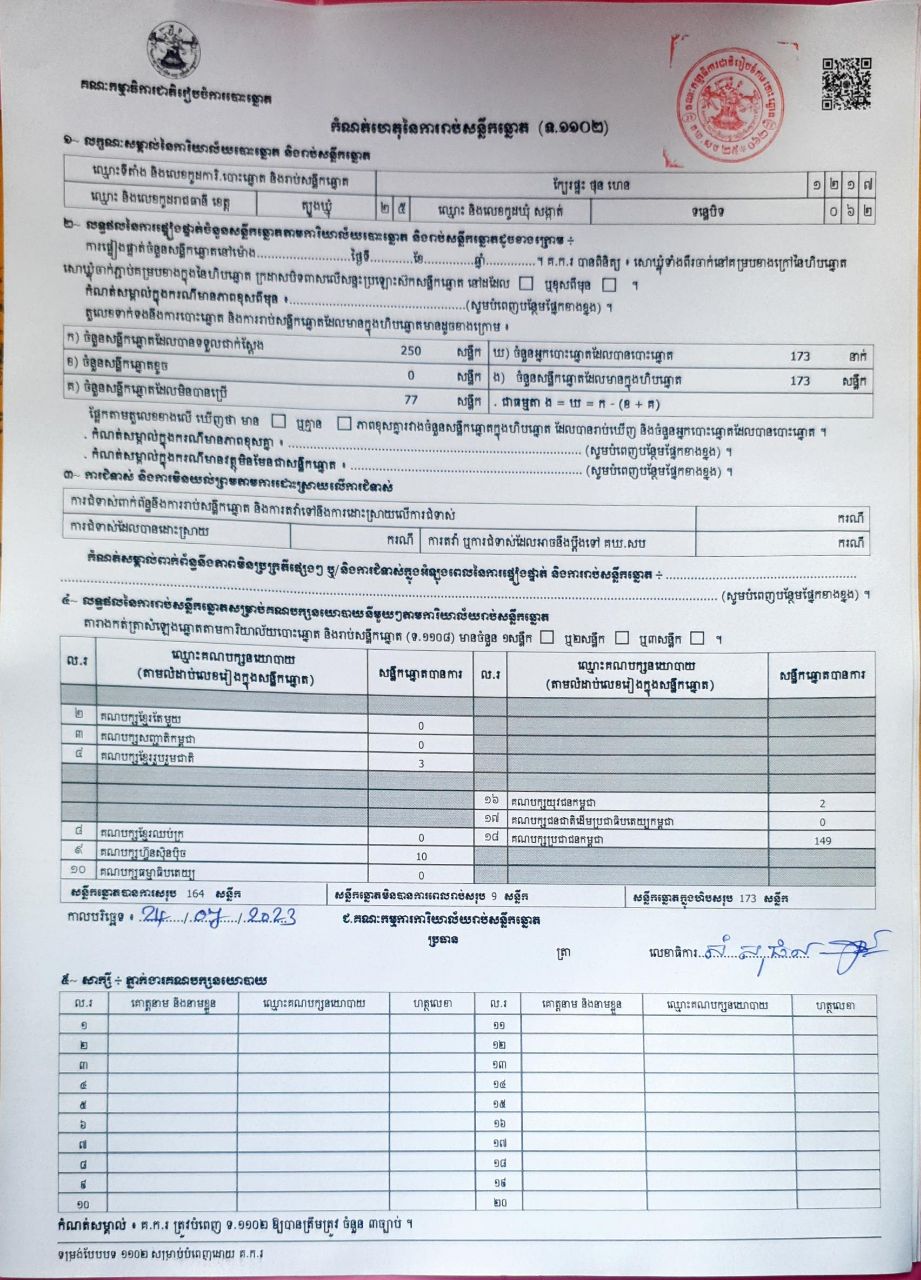 គណៈកម្មាធិការជាតិរៀបចំការបោះឆ្នោត
កំណត់ហេតុនៃការរាប់សន្លឹកឆ្នោត (ទ.១១០២)
១~ លក្ខណៈសម្គាល់នៃការិយាល័យបោះឆ្នោត និងរាប់សន្លឹកឆ្នោត
ឈ្មោះទីតាំង និងលេខកូដការិ.បោះឆ្នោត និងរាប់សន្លឹកឆ្នោត ក្បែរផ្ទះ ផុន ហេន ១ ២ ១ ៧
ឈ្មោះ និងលេខកូដរាជធានី ខេត្ត ត្បូងឃ្មុំ ២ ៥ ឈ្មោះ និងលេខកូដឃុំ សង្កាត់ ០ ៦ ២
២~ លទ្ធផលនៃការផ្ទៀងផ្ទាត់ចំនួនសន្លឹកឆ្នោតតាមការិយាល័យបោះឆ្នោត និងរាប់សន្លឹកឆ្នោតដូចខាងក្រោម ÷
ការផ្ទៀងផ្ទាត់ចំនួនសន្លឹកឆ្នោតនៅម៉ោង..............ថ្ងៃទី..............ខែ..............ឆ្នាំ..............។ គ.ក.រ បានពិនិត្យ ៖ សោឃ្លុំទាំងពីរចាក់នៅគម្របខាងក្រៅនៃហិបឆ្នោត
សោឃ្លុំចាក់ភ្ជាប់គម្របខាងក្នុងនៃហិបឆ្នោត ក្រដាសបិទពាសលើសន្ទះប្រឡោះស៊កសន្លឹកឆ្នោត នៅដដែល ☐ ឬខុសពីមុន ☐ ។
កំណត់សម្គាល់ក្នុងករណីមានភាពខុសពីមុន ៖..............(សូមបំពេញបន្ថែមផ្នែកខាងខ្នង) ។
តួលេខទាក់ទងនឹងការបោះឆ្នោត និងការរាប់សន្លឹកឆ្នោតដែលមានក្នុងហិបឆ្នោតមានដូចខាងក្រោម ៖
ក) ចំនួនសន្លឹកឆ្នោតដែលបានទទួលជាក់ស្តែង 250 សន្លឹក ឃ) ចំនួនអ្នកបោះឆ្នោតដែលបានបោះឆ្នោត 173 នាក់
ខ) ចំនួនសន្លឹកឆ្នោតខូច 0 សន្លឹក ង) ចំនួនសន្លឹកឆ្នោតដែលមានក្នុងហិបឆ្នោត 173 សន្លឹក
គ) ចំនួនសន្លឹកឆ្នោតដែលមិនបានប្រើ 77 សន្លឹក . ជាធម្មតា ង = ឃ = ក - (ខ + គ)
ផ្អែកតាមតួលេខខាងលើ ឃើញថា មាន ☐ ឬគ្មាន ☐ ភាពខុសគ្នារវាងចំនួនសន្លឹកឆ្នោតក្នុងហិបឆ្នោត ដែលបានរាប់ឃើញ និងចំនួនអ្នកបោះឆ្នោតដែលបានបោះឆ្នោត ។
. កំណត់សម្គាល់ក្នុងករណីមានភាពខុសគ្នា ៖ .............. (សូមបំពេញបន្ថែមផ្នែកខាងខ្នង) ។
. កំណត់សម្គាល់ក្នុងករណីមានវត្ថុមិនមែនជាសន្លឹកឆ្នោត ៖ .............. (សូមបំពេញបន្ថែមផ្នែកខាងខ្នង) ។
៣~ ការជំទាស់ និងការមិនយល់ព្រមតាមការដោះស្រាយលើការជំទាស់
ការជំទាស់ពាក់ព័ន្ធនឹងការរាប់សន្លឹកឆ្នោត និងការតវ៉ាទៅនឹងការដោះស្រាយលើការជំទាស់ ករណី
ការជំទាស់ដែលបានដោះស្រាយ ករណី ការតវ៉ា ឬការជំទាស់ដែលអាចនឹងប្តឹងទៅ គឃ.សប ករណី
កំណត់សម្គាល់ពាក់ព័ន្ធនឹងភាពមិនប្រក្រតីផ្សេងៗ ឬ/និងការជំទាស់ក្នុងអំឡុងពេលនៃការផ្ទៀងផ្ទាត់ និងការរាប់សន្លឹកឆ្នោត ÷ ..............
.............. (សូមបំពេញបន្ថែមផ្នែកខាងខ្នង) ។
៤~ លទ្ធផលនៃការរាប់សន្លឹកឆ្នោតសម្រាប់គណបក្សនយោបាយនីមួយៗតាមការិយាល័យរាប់សន្លឹកឆ្នោត
តារាងកត់ត្រាសំឡេងឆ្នោតតាមការិយាល័យបោះឆ្នោត និងរាប់សន្លឹកឆ្នោត (ទ.១១០៨) មានចំនួន ១សន្លឹក ☐ ឬ២សន្លឹក ☐ ឬ៣សន្លឹក ☐ ។
ល.រ ឈ្មោះគណបក្សនយោបាយ (តាមលំដាប់លេខរៀងក្នុងសន្លឹកឆ្នោត) សន្លឹកឆ្នោតបានការ ល.រ ឈ្មោះគណបក្សនយោបាយ (តាមលំដាប់លេខរៀងក្នុងសន្លឹកឆ្នោត) សន្លឹកឆ្នោតបានការ
២ គណបក្សខ្មែរតែមួយ 0
៣ គណបក្សសញ្ជាតិកម្ពុជា 0
៤ គណបក្សខ្មែររួបរួមជាតិ 3
១៦ គណបក្សយុវជនកម្ពុជា 2
១៧ គណបក្សជនជាតិដើមប្រជាធិបតេយ្យកម្ពុជា 0
៨ គណបក្សខ្មែរឈប់ក្រ 0 ១៨ គណបក្សប្រជាជនកម្ពុជា 149
៩ គណបក្សហ្វ៊ុនស៊ិនប៉ិច 10
១០ គណបក្សធម្មាធិបតេយ្យ 0
សន្លឹកឆ្នោតបានការសរុប 164 សន្លឹក សន្លឹកឆ្នោតមិនបានការពេលរាប់សរុប 9 សន្លឹក សន្លឹកឆ្នោតក្នុងហិបសរុប 173 សន្លឹក
កាលបរិច្ឆេទ ៖ 24 / 07 / 2023 ជ.គណៈកម្មការការិយាល័យរាប់សន្លឹកឆ្នោត
ប្រធាន
ត្រា លេខាធិការ
៥~ សាក្សី ÷ ភ្នាក់ងារគណបក្សនយោបាយ
ល.រ គោត្តនាម និងនាមខ្លួន ឈ្មោះគណបក្សនយោបាយ ហត្ថលេខា ល.រ គោត្តនាម និងនាមខ្លួន ឈ្មោះគណបក្សនយោបាយ ហត្ថលេខា
១ ១១
២ ១២
៣ ១៣
៤ ១៤
៥ ១៥
៦ ១៦
៧ ១៧
៨ ១៨
៩ ១៩
១០ ២០
កំណត់សម្គាល់ ៖ គ.ក.រ ត្រូវបំពេញ ទ.១១០២ ឱ្យបានត្រឹមត្រូវ ចំនួន ៣ច្បាប់ ។
ទម្រង់បែបបទ ១១០២ សម្រាប់បំពេញដោយ គ.ក.រ